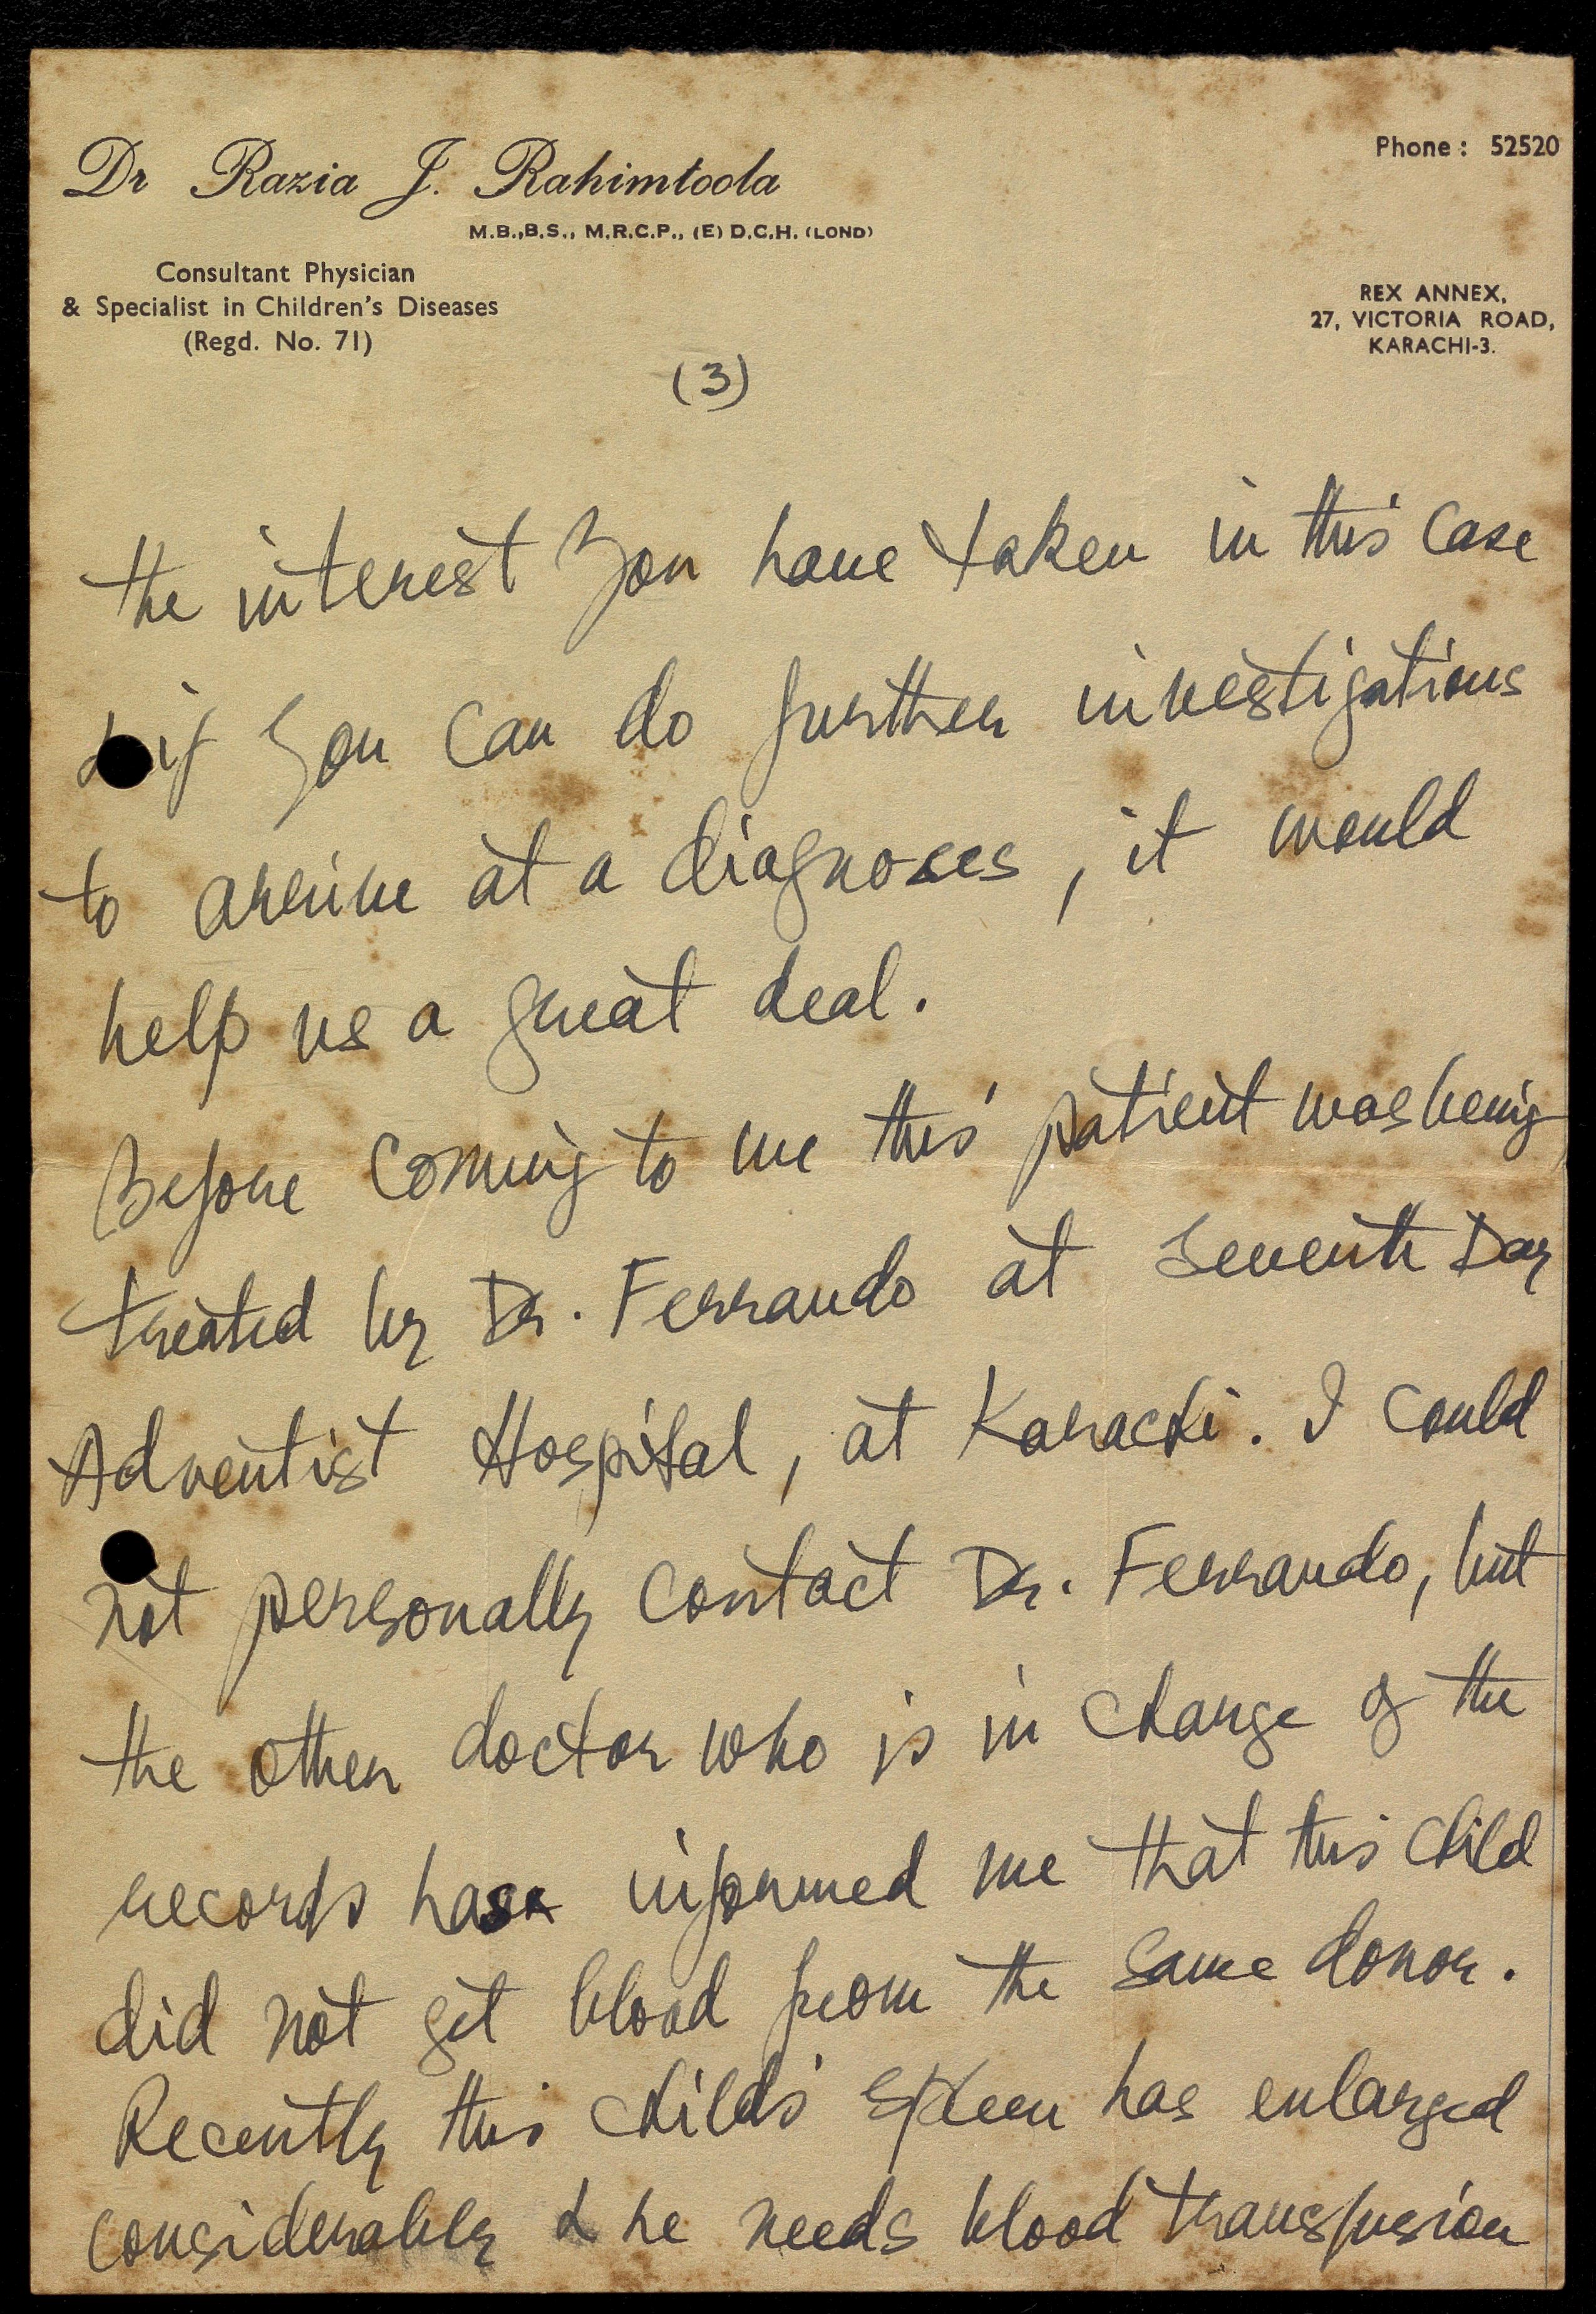 Dr Razia J. Rahimtoola
M.B.,B.S., M.R.C.P., (E) D.C.H. (LOND)
Consultant Physician
& Specialist in Children's Diseases
(Regd. No. 71)
Phone : 52520
REX ANNEX,
27, VICTORIA ROAD,
KARACHI-3.
(3)
the interest you have taken in this case
& if you can do further investigations
to arrive at a diagnoses, it would
help us a great deal.
Before coming to me this patient was being
treated by Dr. Ferrando at Seventh Day
Adventist Hospital, at Karachi. I could
not personally contact Dr. Ferrando, but
the other doctor who is in charge of the
records has informed me that this child
did not get blood from the same donor.
Recently this child's spleen has enlarged
considerably & he needs blood transfusion